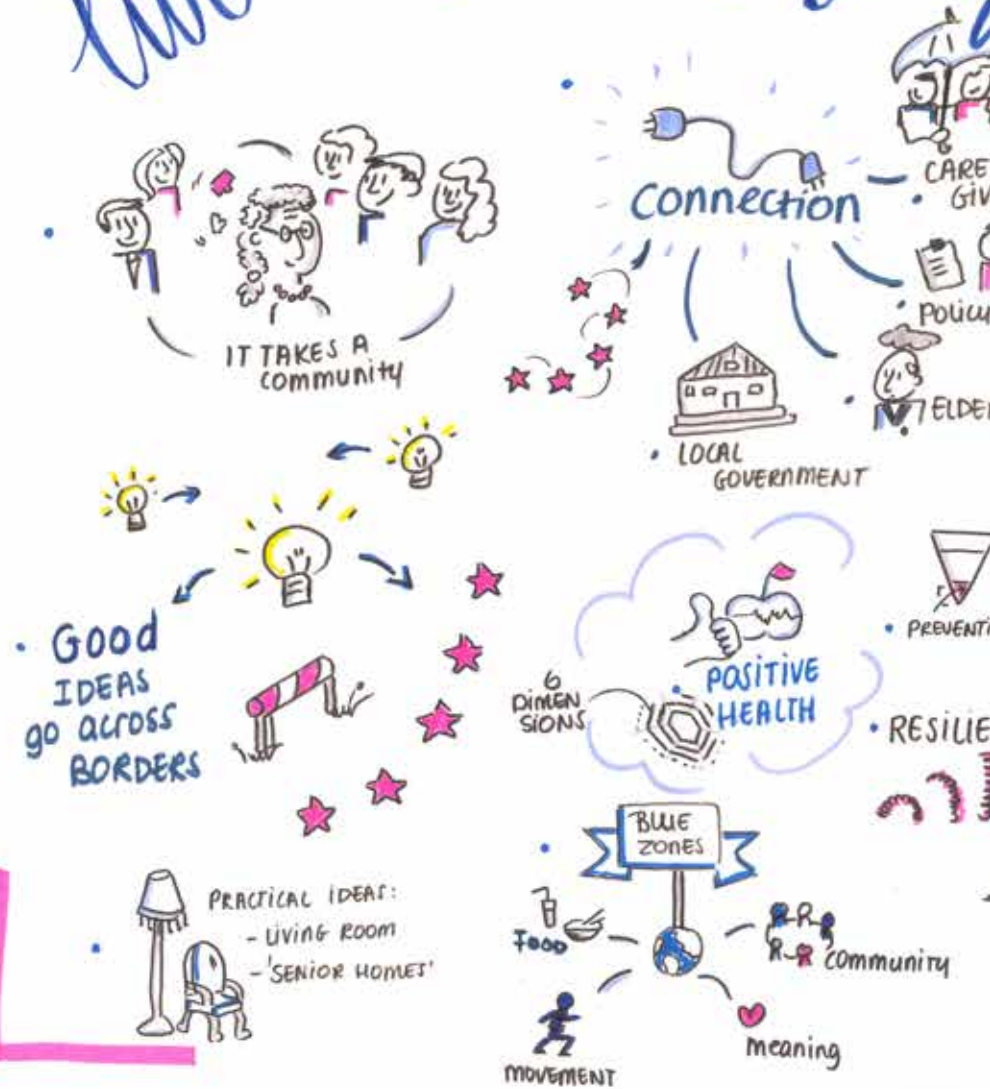 IT TAKES A
community
Connection
CARE
GIV
POLICY
LOCAL
GOVERNMENT
ELDER
Good
IDEAS
go across
BORDERS
6
DIMEN
SIONS
POSITIVE
HEALTH
PREVENTI
RESILIE
PRACTICAL IDEAS:
- LIVING ROOM
- 'SENIOR HOMES'
BLUE
ZONES
FOOD
community
MOVEMENT
meaning